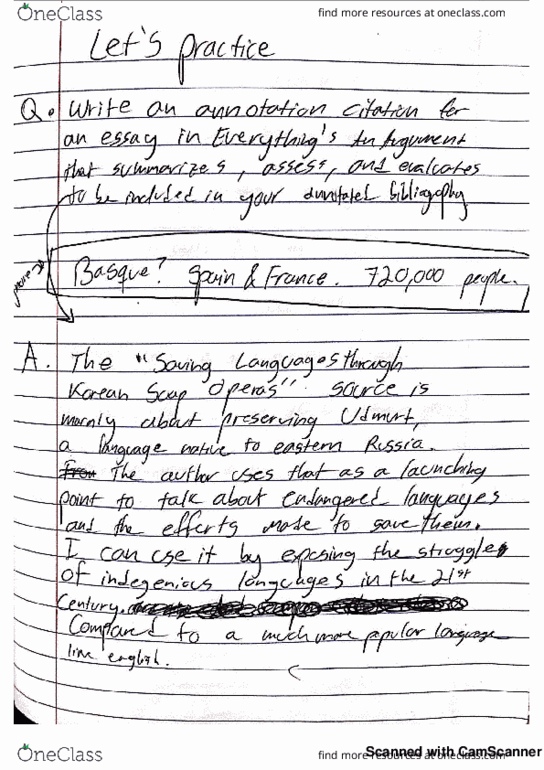 OneClass
find more resources at oneclass.com
Let's practice
Q. Write an annotation citation for
an essay in Everything's An Argument
that summarizes, assess, and evaluates
to be included in your annotated bibliography
Basque? Spain & France. 720,000 people.
A. The "Saving Languages through
Korean Soap Operas" source is
mainly about preserving Udmurt,
a language native to eastern Russia.
The author uses that as a launching
point to talk about endangered languages
and the efforts made to save them.
I can use it by exposing the struggles
of indegenious languages in the 21st
Century.
Compared to a much more popular language
like english.
OneClass
find more resources at oneclass.com
Scanned with CamScanner